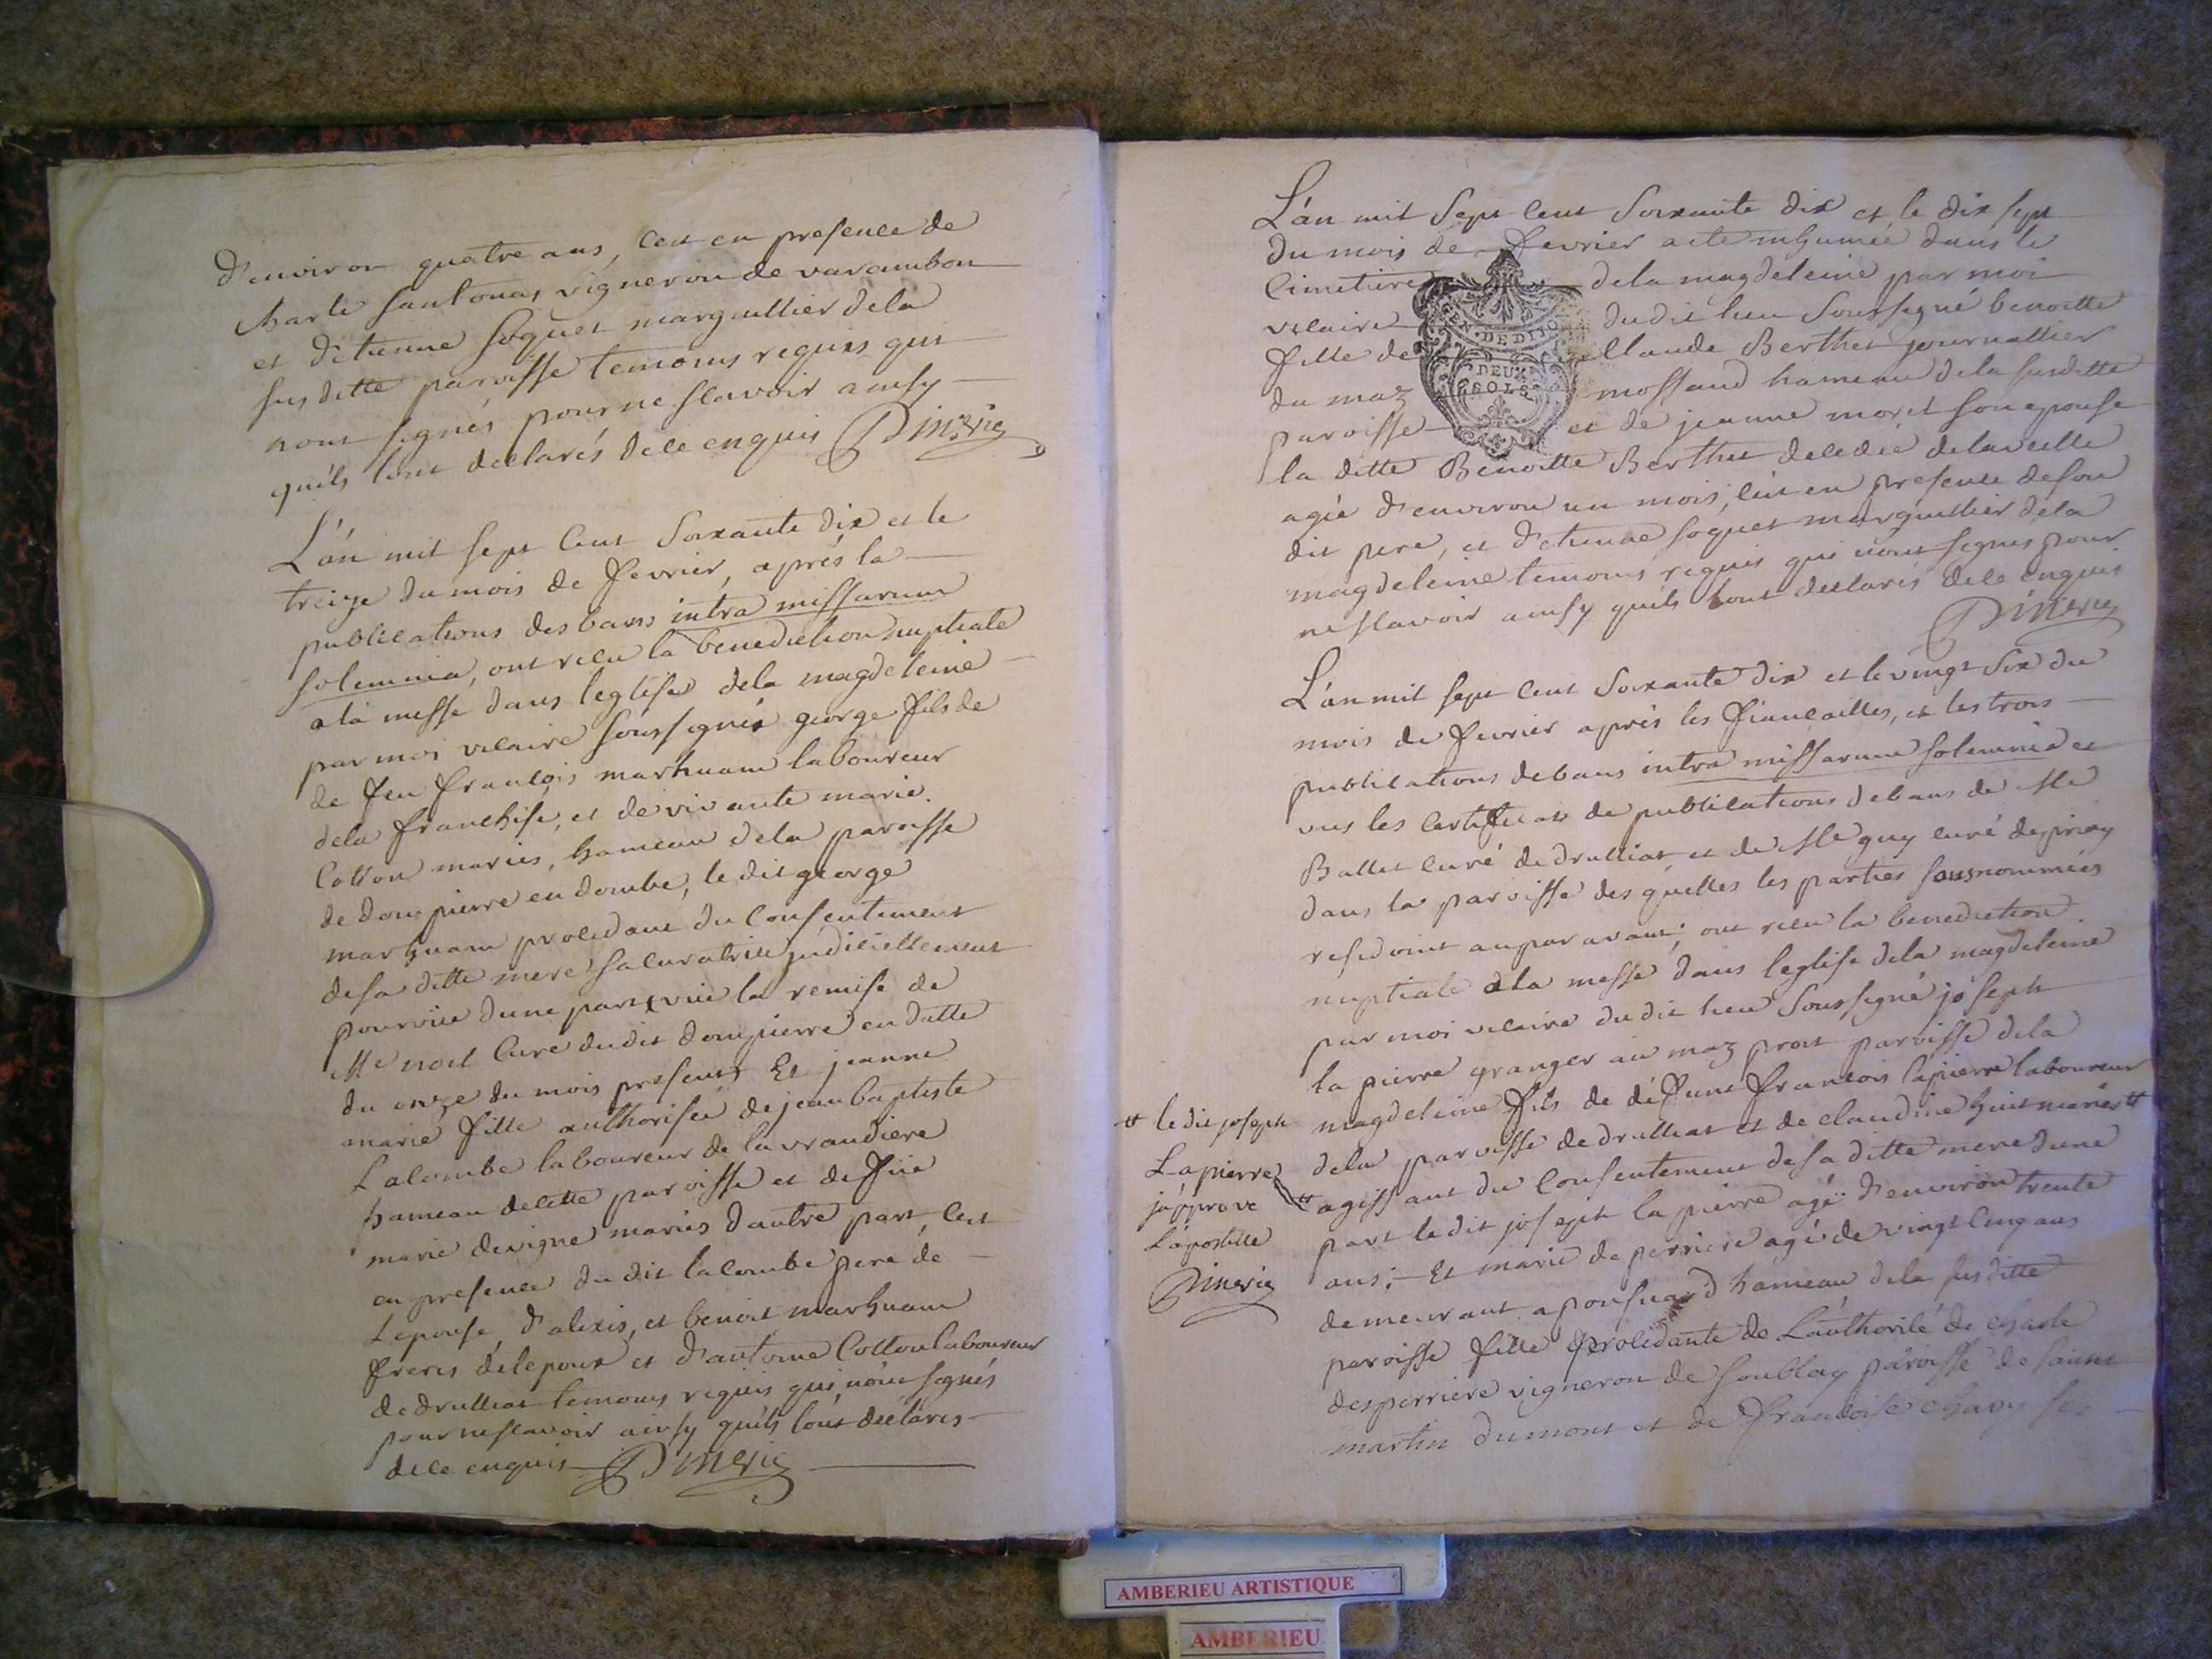 d'environ quatre ans, c'est en presence de
charle fantonas vigneron de varambon
et d'etienne soquet marguillier dela
sus ditte paroisse temoins requis qui
n'ont signés pour ne scavoir ainsy
qu'ils l'ont declarés de ce enquis Dineric
L'an mil sept cent soixante dix et le
treize du mois de fevrier, aprés la
publications des bans intra missarum
solemnia, ont recu la benediction nuptiale
a la messe dans leglise dela magdeleine
par moi vicaire soussignés george fils de
de feu francois marhuam laboureur
dela franchise, et de vivante marie
Cotton mariés, hameau dela paroisse
de dompierre en dombe, le dit george
marhuam procedant du consentement
de sa ditte mere sa curatrice judiciellement
pourvue d'une part, vüe la remise de
Mr noel Curé dudit dompierre en datte
du onze du mois present, Et jeanne
marie fille authorisée de jean baptiste
Lacombe laboureur de la vrandiere
hameau de cette paroisse et de füe
marie devigne mariés d'autre part, c'est
en presence du dit lacombe pere de
l'epouse, d'alexis, et benoit marhuam
freres de l'epoux et d'antoine Cotton laboureur
de druillat temoins requis qui n'ont signés
pour ne scavoir ainsy qu'ils l'ont declarés
de ce enquis Dineric
L'an mil sept cent soixante dix et le dix sept
du mois de fevrier a ete inhumée dans le
Cimetiere dela magdeleine par moi
vicaire dudit lieu soussigné benoitte
fille de Claude Berthet journallier
du maz mossand hameau dela susditte
paroisse et de jeanne moret son epouse
la ditte Benoitte Berthet decedée de la veille
agée d'environ un mois, c'est en presence de son
dit pere, et d'etienne soquet marguillier dela
magdeleine temoins requis qui n'ont signés pour
ne scavoir ainsy qu'ils l'ont declarés de ce enquis
Dineric
EN DEDITIO
DEUX
SOLS
L'an mil sept cent soixante dix et le vingt six du
mois de fevrier aprés les fiancailles, et les trois
publications de bans intra missarum solemnia et
vus les certificats de publications de bans de Mr
Ballet curé de druillat et de Mr guy curé de priay
dans la paroisse des quelles les parties sousnommées
residoint auparavant; ont recu la benediction
nuptiale a la messe dans leglise dela magdeleine
par moi vicaire dudit lieu soussigné joseph
la pierre granger au maz prost paroisse dela
magdeleine fils de défunt francois lapierre laboureur
dela paroisse de druillat et de claudine huit mariés #
agissant du consentement de sa ditte mere d'une
part le dit joseph la pierre agé d'environ trente
ans; Et marie de perriere agé de vingt cinq ans
demeurant a ponsuard hameau dela susditte
paroisse fille procedante de L'authorité de charle
desperriere vigneron de soublay paroisse de saint
martin du mont et de francoise chavy ses
# le dit joseph
Lapierre
j'approve
L'apostille
Dineric
AMBERIEU ARTISTIQUE
AMBERIEU